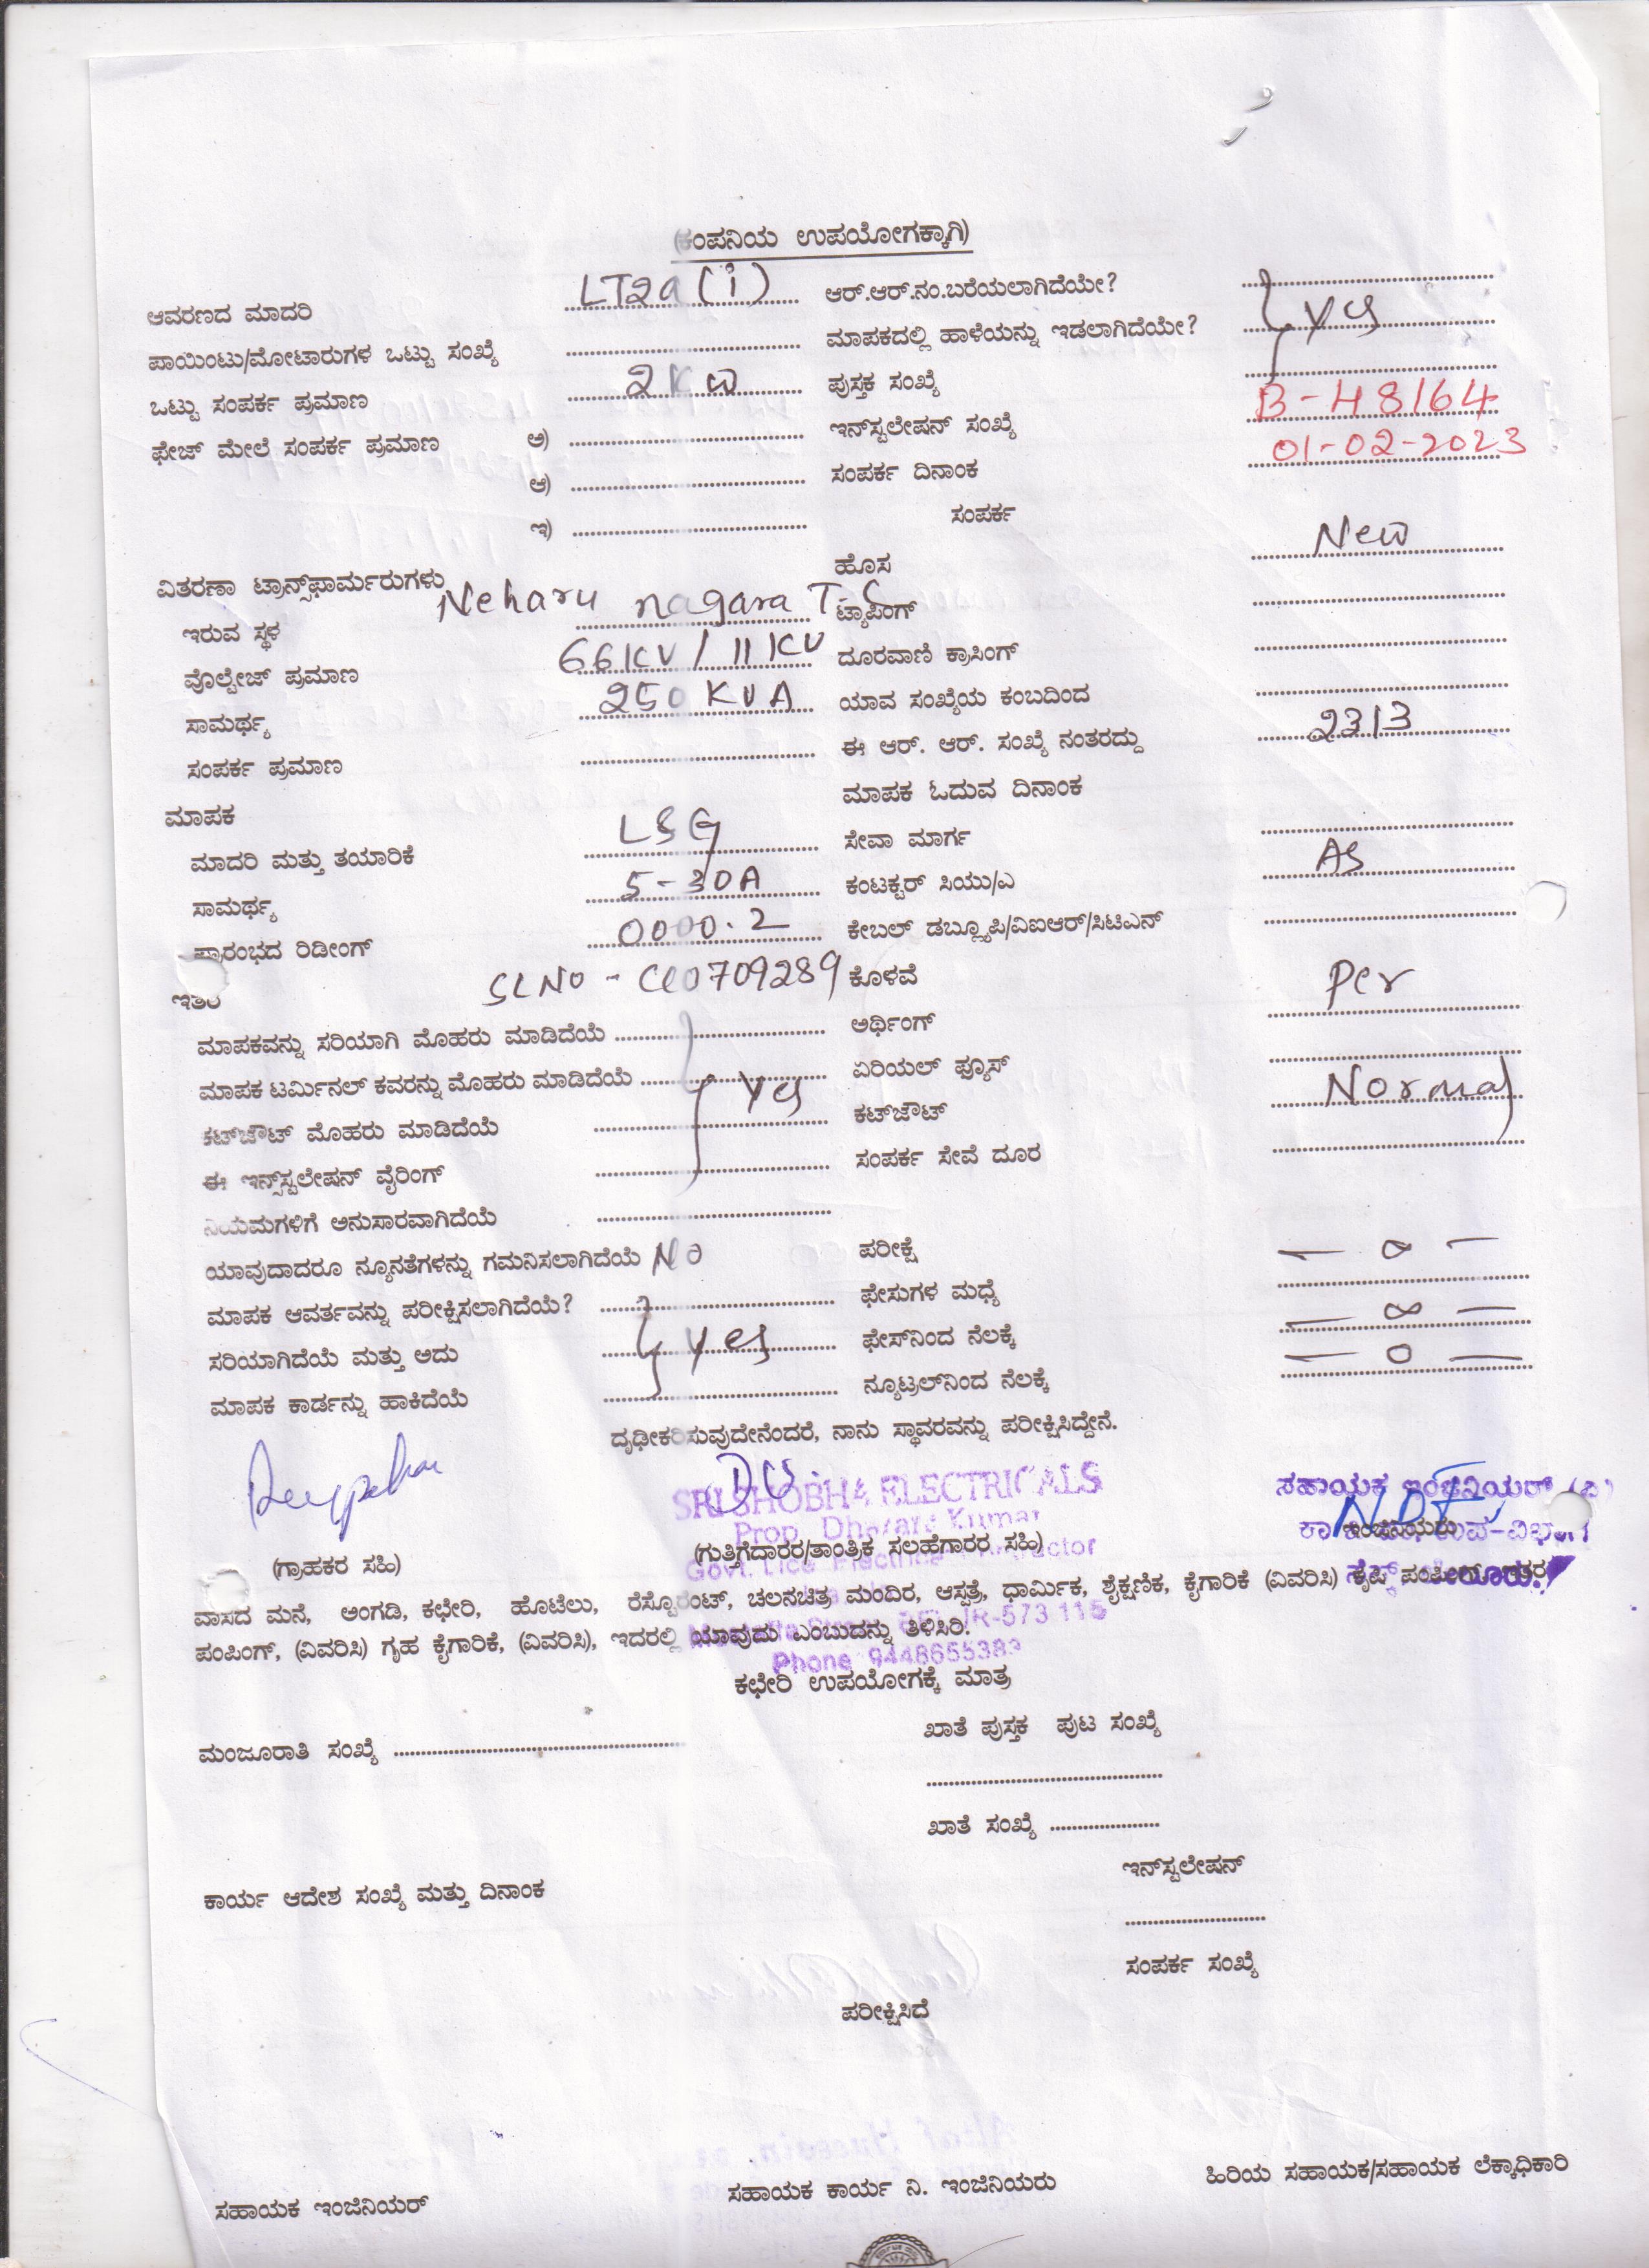 (ಕಂಪನಿಯ ಉಪಯೋಗಕ್ಕಾಗಿ)
ಆವರಣದ ಮಾದರಿ LT2a (i) ಆರ್.ಆರ್.ನಂ.ಬರೆಯಲಾಗಿದೆಯೇ?
ಪಾಯಿಂಟು/ಮೋಟಾರುಗಳ ಒಟ್ಟು ಸಂಖ್ಯೆ ಮಾಪಕದಲ್ಲಿ ಹಾಳೆಯನ್ನು ಇಡಲಾಗಿದೆಯೇ? yes
ಒಟ್ಟು ಸಂಪರ್ಕ ಪ್ರಮಾಣ 2Kw ಪುಸ್ತಕ ಸಂಖ್ಯೆ
ಫೇಜ್ ಮೇಲೆ ಸಂಪರ್ಕ ಪ್ರಮಾಣ ಅ) ಇನ್‌ಸ್ಟಲೇಷನ್ ಸಂಖ್ಯೆ B-48164
ಆ) ಸಂಪರ್ಕ ದಿನಾಂಕ 01-02-2023
ಇ) ಸಂಪರ್ಕ
ವಿತರಣಾ ಟ್ರಾನ್ಸ್‌ಫಾರ್ಮರುಗಳು ಹೊಸ New
ಇರುವ ಸ್ಥಳ Neharu nagara T.C ಟ್ಯಾಪಿಂಗ್
ವೊಲ್ಟೇಜ್ ಪ್ರಮಾಣ 66KV / 11KV ದೂರವಾಣಿ ಕ್ರಾಸಿಂಗ್
ಸಾಮರ್ಥ್ಯ 250 KVA ಯಾವ ಸಂಖ್ಯೆಯ ಕಂಬದಿಂದ
ಸಂಪರ್ಕ ಪ್ರಮಾಣ ಈ ಆರ್. ಆರ್. ಸಂಖ್ಯೆ ನಂತರದ್ದು 2313
ಮಾಪಕ ಮಾಪಕ ಓದುವ ದಿನಾಂಕ
ಮಾದರಿ ಮತ್ತು ತಯಾರಿಕೆ LSG ಸೇವಾ ಮಾರ್ಗ
ಸಾಮರ್ಥ್ಯ 5-30A ಕಂಟಕ್ಟರ್ ಸಿಯು/ಎ As
ಪ್ರಾರಂಭದ ರಿಡೀಂಗ್ 0000.2 ಕೇಬಲ್ ಡಬ್ಲ್ಯೂಪಿ/ವಿಐಆರ್/ಸಿಟಿಎನ್
ಇತರ SLNO - CC0709289 ಕೊಳವೆ Per
ಮಾಪಕವನ್ನು ಸರಿಯಾಗಿ ಮೊಹರು ಮಾಡಿದೆಯೆ ಅರ್ಥಿಂಗ್
ಮಾಪಕ ಟರ್ಮಿನಲ್ ಕವರನ್ನು ಮೊಹರು ಮಾಡಿದೆಯೆ yes ಏರಿಯಲ್ ಫ್ಯೂಸ್ Normal
ಕಟ್‌ಔಟ್ ಮೊಹರು ಮಾಡಿದೆಯೆ ಕಟ್‌ಔಟ್
ಈ ಇನ್ಸ್‌ಸ್ಟಲೇಷನ್ ವೈರಿಂಗ್ ಸಂಪರ್ಕ ಸೇವೆ ದೂರ
ನಿಯಮಗಳಿಗೆ ಅನುಸಾರವಾಗಿದೆಯೆ
ಯಾವುದಾದರೂ ನ್ಯೂನತೆಗಳನ್ನು ಗಮನಿಸಲಾಗಿದೆಯೆ No ಪರೀಕ್ಷೆ
ಮಾಪಕ ಆವರ್ತವನ್ನು ಪರೀಕ್ಷಿಸಲಾಗಿದೆಯೆ? ಫೇಸುಗಳ ಮಧ್ಯೆ — ∞ —
ಸರಿಯಾಗಿದೆಯೆ ಮತ್ತು ಅದು yes ಫೇಸ್‌ನಿಂದ ನೆಲಕ್ಕೆ — ∞ —
ಮಾಪಕ ಕಾರ್ಡನ್ನು ಹಾಕಿದೆಯೆ ನ್ಯೂಟ್ರಲ್‌ನಿಂದ ನೆಲಕ್ಕೆ — 0 —
ದೃಢೀಕರಿಸುವುದೇನೆಂದರೆ, ನಾನು ಸ್ಥಾವರವನ್ನು ಪರೀಕ್ಷಿಸಿದ್ದೇನೆ.
SRI SHOBHA ELECTRICALS ಸಹಾಯಕ ಇಂಜಿನಿಯರ್ (ವಿ)
Prop. Kumar ಇಂಜಿನಿಯರು
(ಗ್ರಾಹಕರ ಸಹಿ) (ಗುತ್ತಿಗೆದಾರರ/ತಾಂತ್ರಿಕ ಸಲಹೆಗಾರರ ಸಹಿ)
ವಾಸದ ಮನೆ, ಅಂಗಡಿ, ಕಛೇರಿ, ಹೊಟೆಲು, ರೆಸ್ಟೊರೆಂಟ್, ಚಲನಚಿತ್ರ ಮಂದಿರ, ಆಸ್ಪತ್ರೆ, ಧಾರ್ಮಿಕ, ಶೈಕ್ಷಣಿಕ, ಕೈಗಾರಿಕೆ (ವಿವರಿಸಿ) ಕೃಷಿ ಪಂಪಿಂಗ್
ಪಂಪಿಂಗ್, (ವಿವರಿಸಿ) ಗೃಹ ಕೈಗಾರಿಕೆ, (ವಿವರಿಸಿ), ಇದರಲ್ಲಿ ಯಾವುದು ಎಂಬುದನ್ನು ತಿಳಿಸಿರಿ.
Phone 9448655383
ಕಛೇರಿ ಉಪಯೋಗಕ್ಕೆ ಮಾತ್ರ
ಮಂಜೂರಾತಿ ಸಂಖ್ಯೆ ಖಾತೆ ಪುಸ್ತಕ ಪುಟ ಸಂಖ್ಯೆ
ಖಾತೆ ಸಂಖ್ಯೆ
ಇನ್‌ಸ್ಟಲೇಷನ್
ಕಾರ್ಯ ಆದೇಶ ಸಂಖ್ಯೆ ಮತ್ತು ದಿನಾಂಕ
ಸಂಪರ್ಕ ಸಂಖ್ಯೆ
ಪರೀಕ್ಷಿಸಿದೆ
ಸಹಾಯಕ ಇಂಜಿನಿಯರ್ ಸಹಾಯಕ ಕಾರ್ಯ ನಿ. ಇಂಜಿನಿಯರು ಹಿರಿಯ ಸಹಾಯಕ/ಸಹಾಯಕ ಲೆಕ್ಕಾಧಿಕಾರಿ